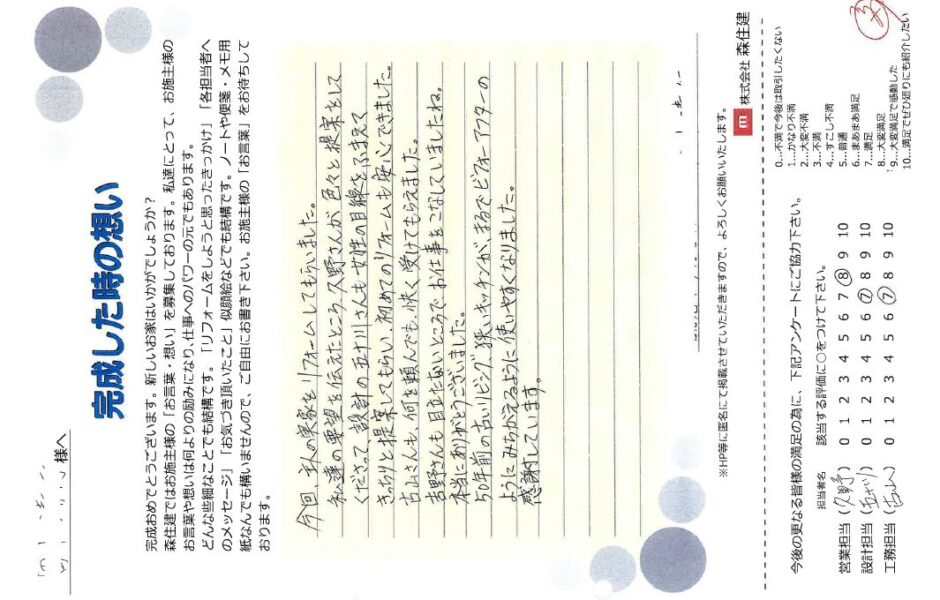 様へ
完成した時の想い
完成おめでとうございます。新しいお家はいかがでしょうか?
森住建ではお施主様の「お言葉・想い」を募集しております。私達にとって、お施主様の
お言葉や想いは何よりの励みになり、仕事へのパワーの元でもあります。
どんな些細なことでも結構です。「リフォームをしようと思ったきっかけ」「各担当者へ
のメッセージ」「お気づき頂いたこと」似顔絵などでも結構です。ノートや便箋・メモ用
紙なんでも構いませんので、ご自由にお書き下さい。お施主様の「お言葉」をお待ちして
おります。
今回、私の実家をリフォームしてもらいました。
私達の要望を伝えたところ、久野さんが色々と提案をして
くださって、設計の五十川さんも女性の目線をふまえて
きっちりと提案してもらい、初めてのリフォームも安心できました。
古山さんも、何を頼んでも、快く受けてもらえました。
吉野さんも目立たないところでお仕事をこなしていましたね。
本当にありがとうございました。
50年前の古いリビング、狭いキッチンが、まるでビフォーアフターの
ようにみちがえるように使いやすくなりました。
感謝しています。
※HP等に匿名にて掲載させていただきますので、よろしくお願いいたします。
m 株式会社 森住建
今後の更なる皆様の満足の為に、下記アンケートにご協力下さい。
担当者名 該当する評価に○をつけて下さい。
営業担当 (久野) 0 1 2 3 4 5 6 7 8 9 10
設計担当 (五十川) 0 1 2 3 4 5 6 7 8 9 10
工務担当 (古山) 0 1 2 3 4 5 6 7 8 9 10
0…不満で今後は取引したくない
1…かなり不満
2…大変不満
3…不満
4…すこし不満
5…普通
6…まあまあ満足
7…満足
8…大変満足
9…大変満足で感動した
10…満足でぜひ廻りにも紹介したい